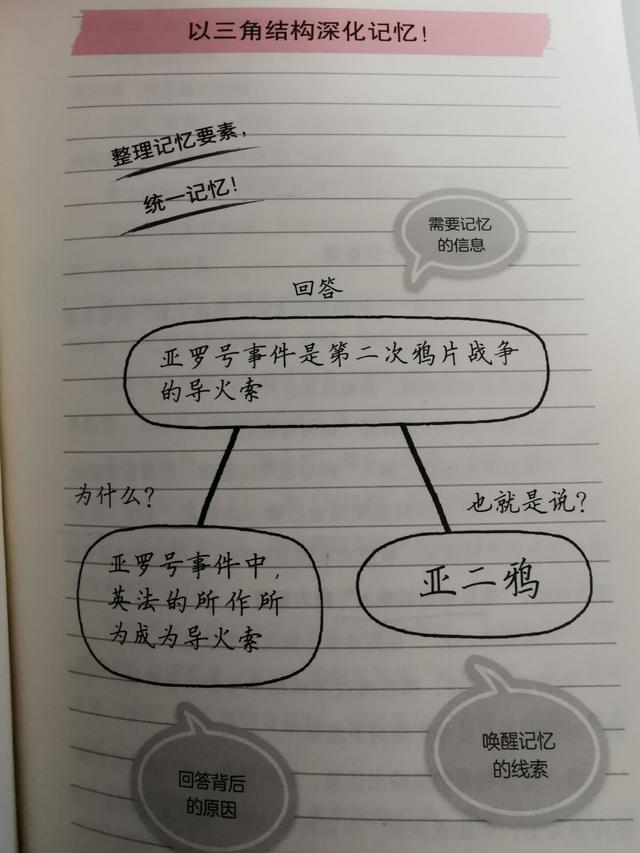 以三角结构深化记忆！
整理记忆要素，
统一记忆！
需要记忆
的信息
回答
亚罗号事件是第二次鸦片战争
的导火索
为什么？
也就是说？
亚罗号事件中，
英法的所作所
为成为导火索
亚二鸦
唤醒记忆
的线索
回答背后
的原因